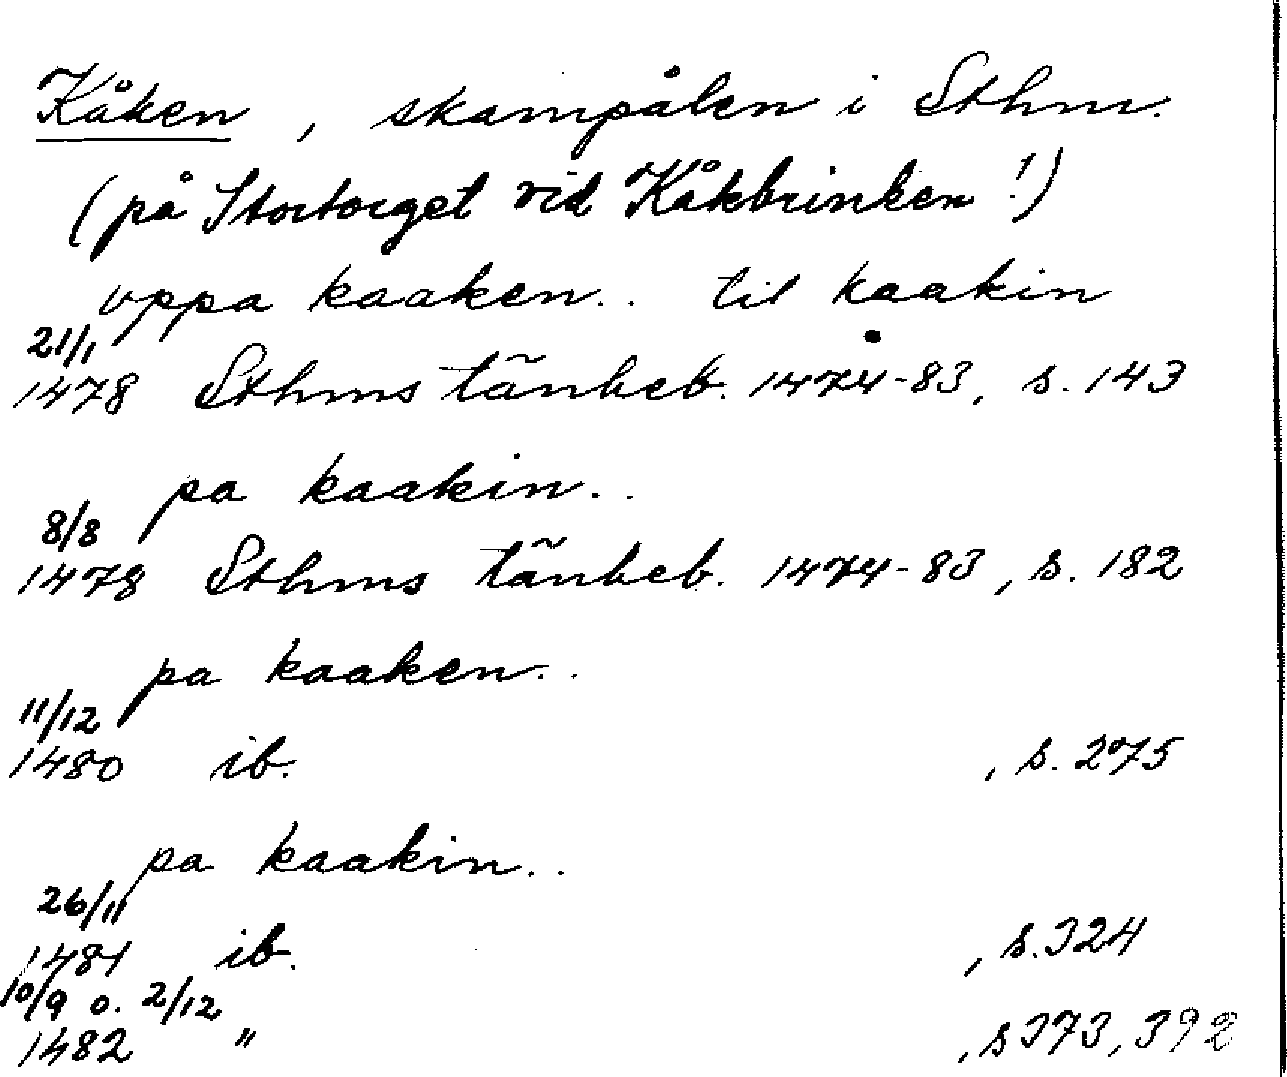 Kåken, skampålen i Sthm.
(på Stortorget vid Kåkbrinken!)
uppa kaaken.. til kaakin
21/1
1478 Sthms tänkeb. 1474-83, s. 143
pa kaakin..
8/8
1478 Sthms tänkeb. 1474-83, s. 182
pa kaaken..
11/12
1480 ib. , s. 275
pa kaakin..
26/11
1481 ib. , s. 324
10/9 o. 2/12
1482 " , s 373, 392